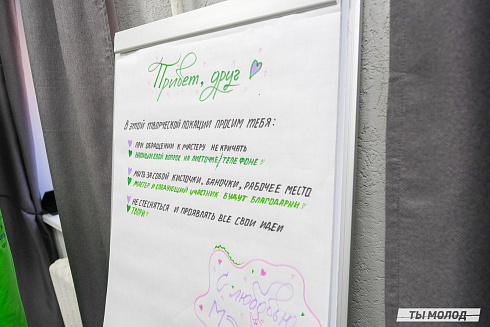 Привет, друг
В этой творческой локации просим тебя:
при обращении к мастеру не кричать
напиши свой вопрос на листочке/телефоне
мыть за собой кисточки, баночки, рабочее место
мастер и следующий участник будут благодарны!
не стесняться и проявлять все свои идеи
твори
С любовью
ТЫ МОЛОД